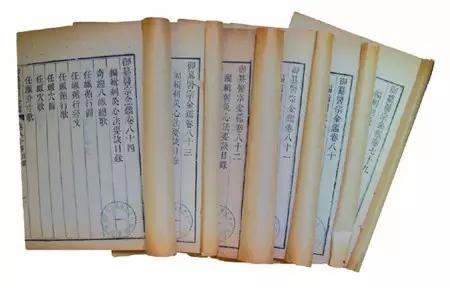 御纂醫宗金鑑卷七十九
御纂醫宗金鑑卷八十
御纂醫宗金鑑卷八十一
御纂醫宗金鑑卷八十二
編輯刺灸心法要訣目錄
御纂醫宗金鑑卷八十三
編輯刺灸心法要訣目錄
御纂醫宗金鑑卷八十四
編輯刺灸心法要訣目錄
奇經八脈總歌
任脈循行圖
任脈循行經文
任脈循行歌
任脈穴圖
任脈穴歌
任脈分寸歌